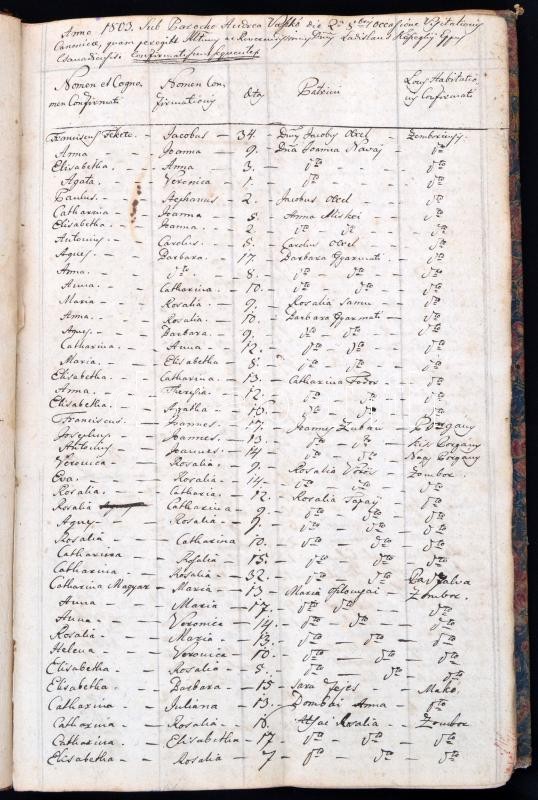 Anno 1803. Sub Parocho Andrea Vaskó die 2a 8bris occasione Visitationis
Canonicae, quam peregit Illmus ac Rmus Dnus Ladislaus Eppus
Csanadiensis. Confirmati sunt sequentes
Nomen et Cogno- Nomen Con- Loco Habitatio-
men Confirmati firmationis Etas Patrini nis Confirmati
Franciscus Fekete. - Jacobus - 34. - Dnus Jacobus - Zomboriensis.
Anna - Joanna - 9. - Dna Joanna - dto
Elisabetha. - Anna - 3. - dto - dto
Agata. - Veronica - 1. - dto - dto
Paulus. - Stephanus - 2. - Jacobus - dto
Catharina - Joanna - 8. - Anna Miskei - dto
Elisabetha. - Joanna. - 2. - dto dto - dto
Antonius. - Carolus. - 8. - Carolus - dto
Agnes. - Barbara. - 17. - Barbara Gyarmati - dto
Anna. - dto. - 8. - dto dto - dto
Anna. - Catharina. - 10. - dto dto - dto
Maria - Rosalia - 9. - Rosalia Samu - dto
Anna. - Rosalia. - 10. - Barbara Gyarmati - dto
Agnes. - Barbara. - 9. - dto - dto - dto
Catharina. - Anna - 12. - dto - dto - dto
Maria. - Elisabetha - 8. - dto dto - dto
Elisabetha. - Catharina. - 13. - Catharina Fodor - dto
Anna. - Theresia. - 12. - dto dto - dto
Elisabetha. - Agatha - 15. - dto - dto - dto
Franciscus. - Joannes. - 17. - Joannes Zuban - Porgany
Josephus - Joannes. - 13. - dto dto - Kis Porgany
Antonius - Joannes. - 14 - dto dto - Nagy Porgany
Veronica - Rosalia. - 9. - Rosalia Vörös - Zombor.
Eva. - Rosalia - 14. - dto dto - dto
Rosalia. - Catharia. - 12. - Rosalia - dto
Rosalia - Catharina - 9. - dto - dto - dto
Agnes - Rosalia. - 9. - dto - dto - dto
Rosalia - Catharina 10. - dto - dto - dto
Catharina - Rosalia - 15. - dto - dto - dto
Catharina - Rosalia - 32. - dto dto -
Catharina Magyar - Maria - 13 - Maria - Zombor.
Anna - Maria - 17. - dto dto - dto
Anna - Veronica - 14. - dto - dto - dto
Rosalia. - Maria - 13. - dto - dto - dto
Helena - Veronica - 10. - dto - dto - dto
Elisabetha - Rosalia - 5. - dto dto - dto
Elisabetha. - Barbara - 15 - Sara Fejes - Makó.
Catharina - Juliana - 13. - Dombai Anna - dto
Catharina - Rosalia - 16. - Rosalia - Zombor
Catharina - Elisabetha - 17 - dto - dto - dto
Elisabetha - Rosalia - 7 - dto - dto - dto